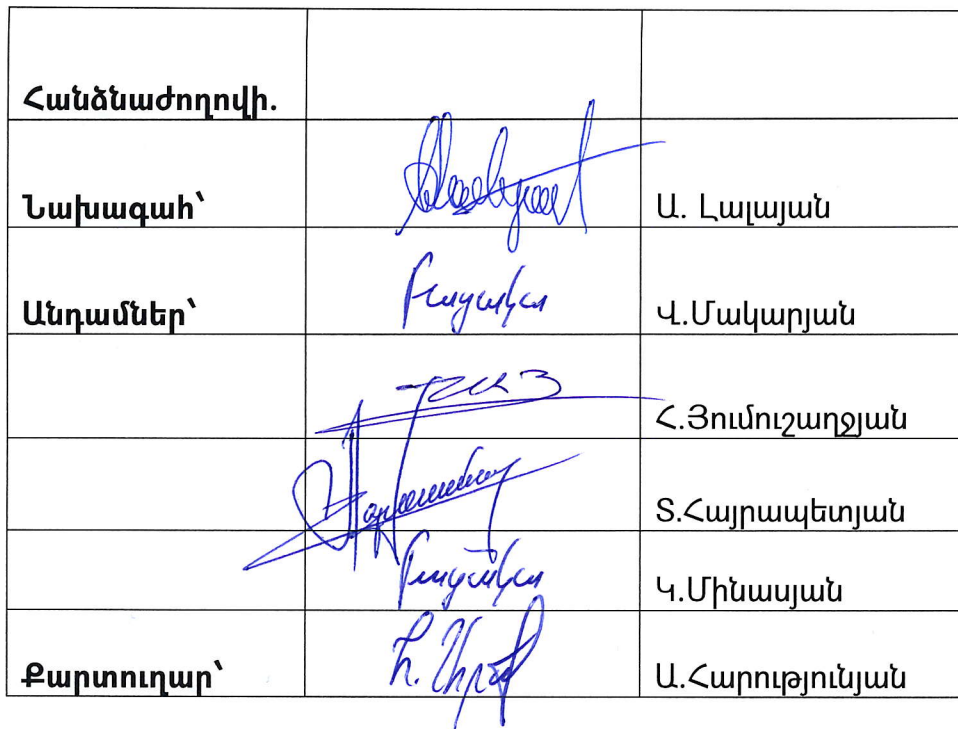 Հանձնաժողովի.
Նախագահ՝ Ա. Լալայան
Անդամներ՝ բացակա Վ.Մակարյան
Հ.Յումուշաղջյան
Տ.Հայրապետյան
բացակա Կ.Մինասյան
Քարտուղար՝ Ա.Հարությունյան